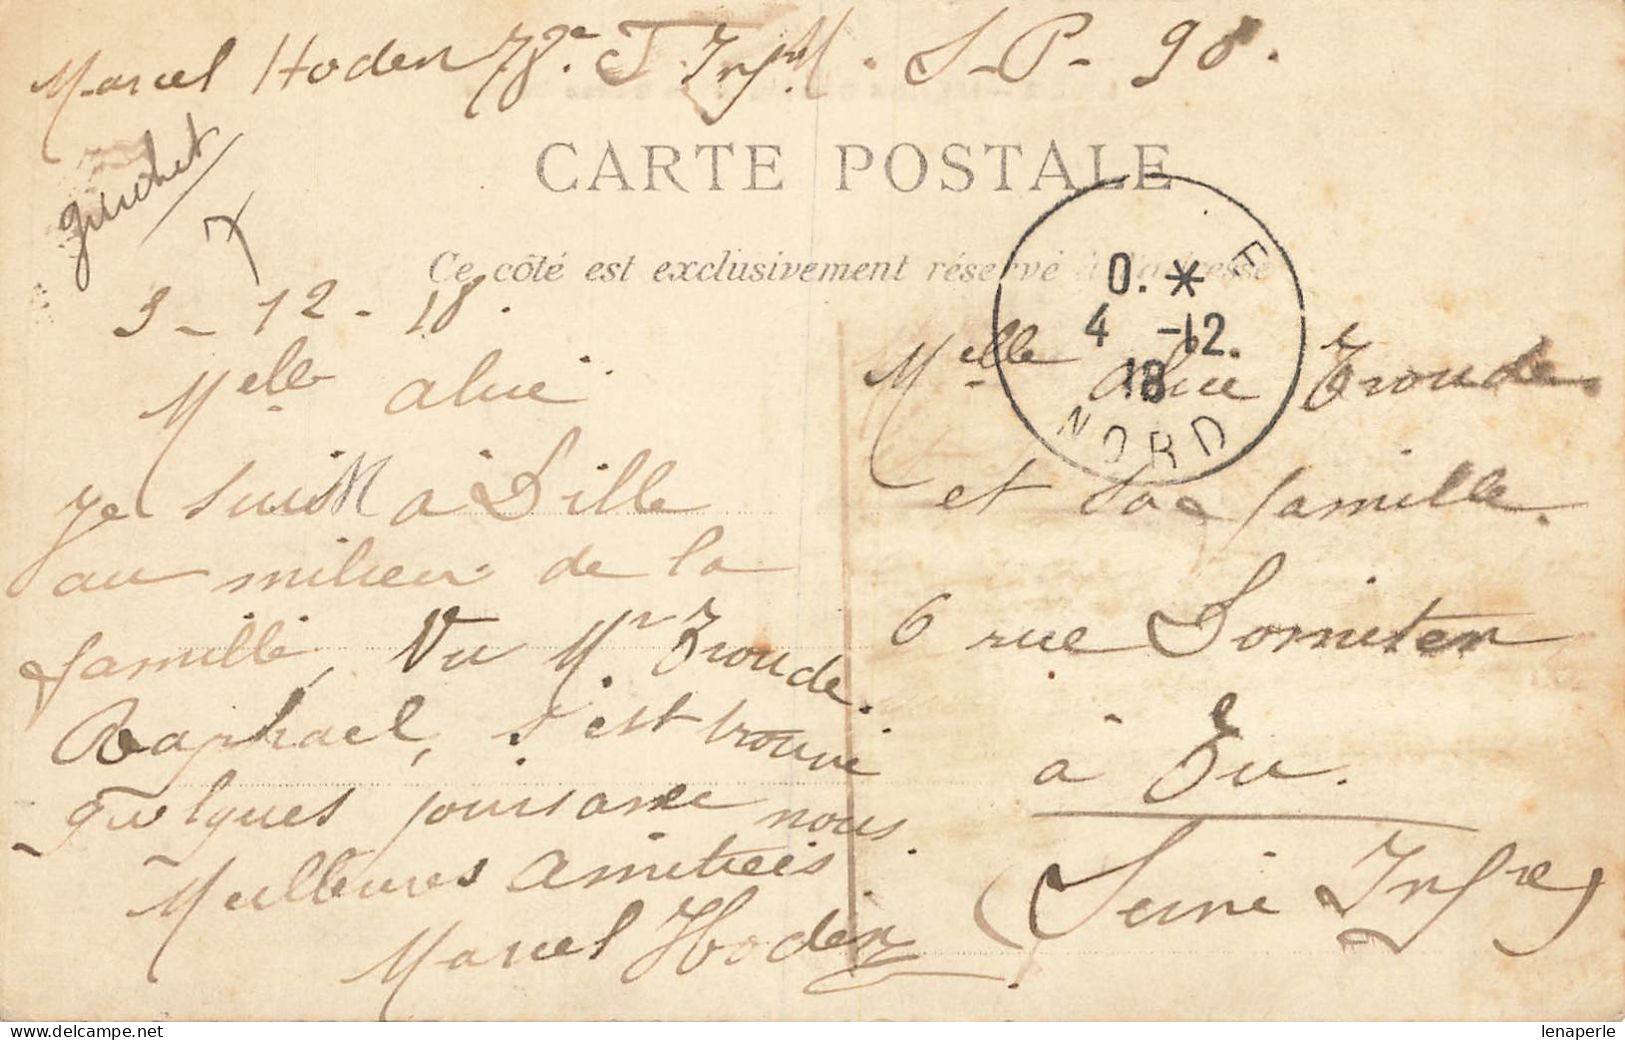 Marcel Hoden 78e T. Infie M. S-P- 98.
CARTE POSTALE
Ce côté est exclusivement réservé à l'adresse
3 - 12 - 18.
Melle alice
Je suis à Lille
au milieu de la
famille, Vu Mr Troude
Raphael, s'est trouvé
quelques jours avec nous.
Meilleures amitiées
Marcel Hoden
E
0. *
4 -12.
18
NORD
Melle alice Troude
et sa famille.
6 rue
à Eu.
(Seine Infre)
lenaperle